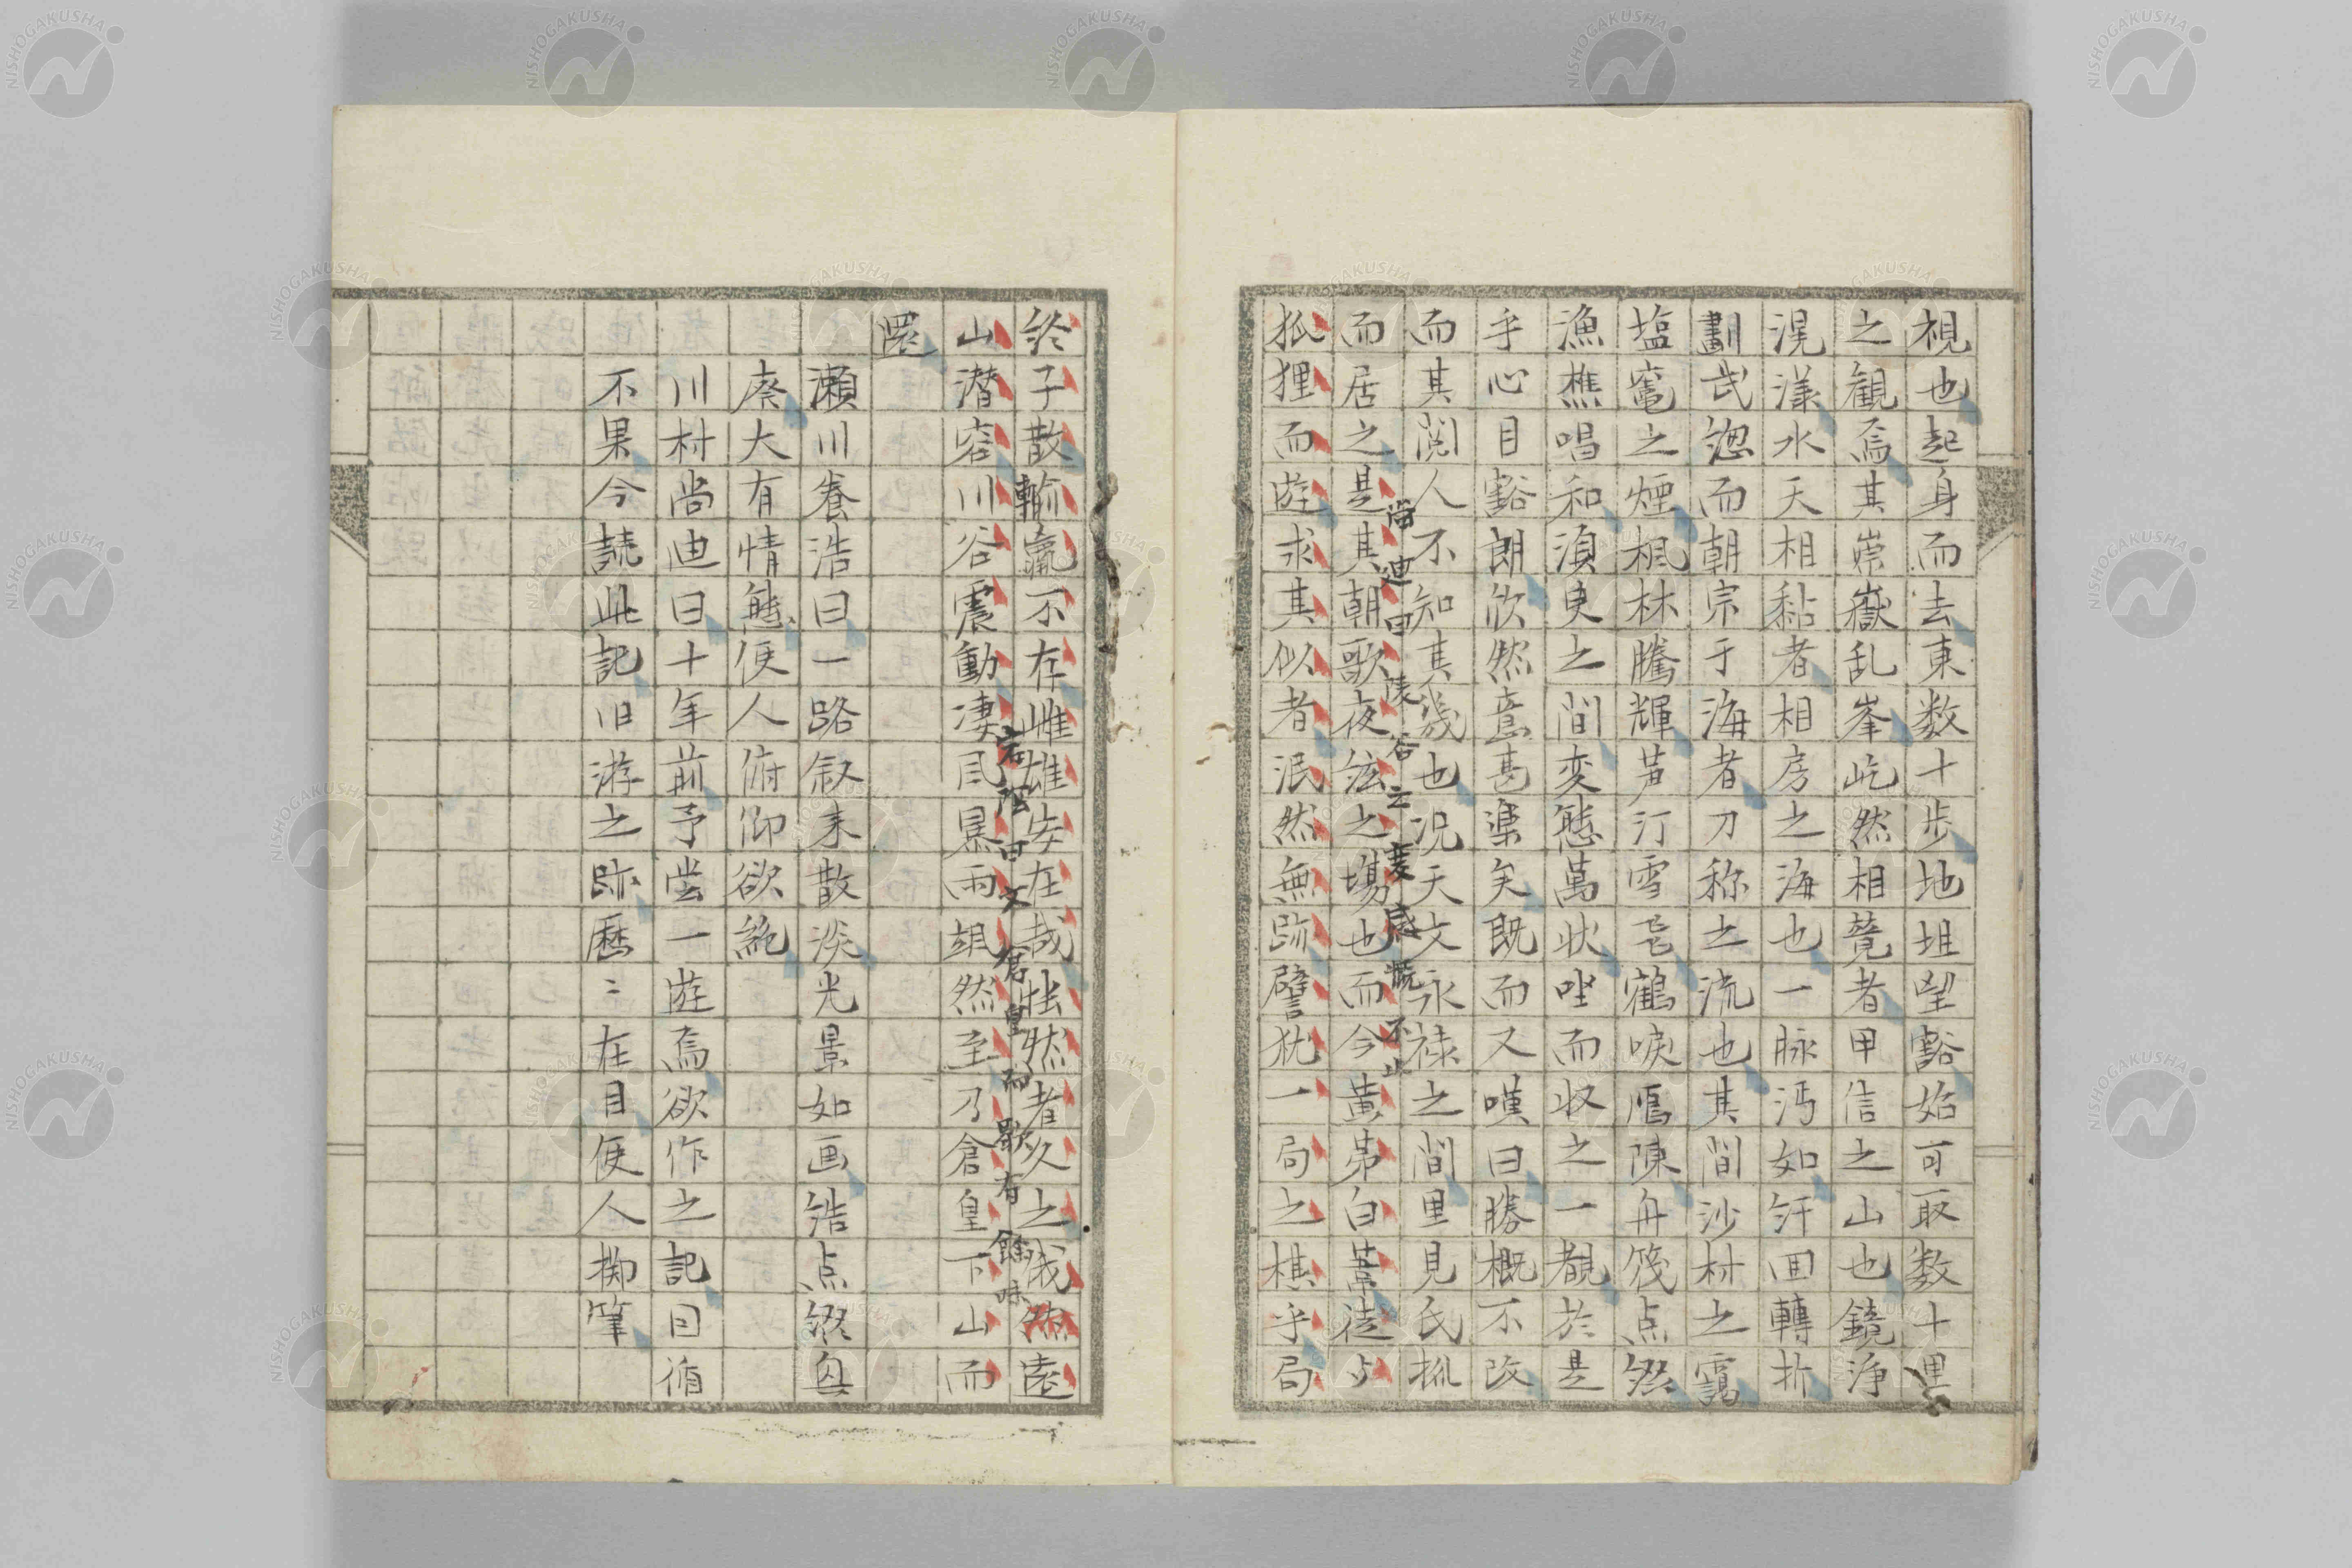 視也起身而去東数十歩地坦望豁始可取数十里
之観焉其崇嶽乱峯屹然相競者甲信之山也鏡浄
滉漾水天相黏者相房之海也一脉沔如紆回轉折
劃武惣而朝宗于海者刀称之流也其間沙村之靄
塩竈之煙楓林騰輝芦汀雪色鶴唳鴈陳舟筏点綴
漁樵唱和湏臾之間変態萬状唑而収之一覩於是
乎心目豁朗欣然意甚楽矣既而又嘆曰勝概不改
而其閲人不知其幾也况天文永禄之間里見氏抓
尚迪曰陵谷之変感慨不止
而居之是其朝歌夜絃之場也而今黄茅白葦徒与
狐狸而遊求其似者泯然無跡譬犹一局之棋乎局
終子散輸贏不存雌雄安在哉悵然者久之俄然遠
宕陰曰文倉皇而歇有餘味
山潜容川谷震動凄風暴雨颯然至乃倉皇下山而
還
瀬川養浩曰一路叙来散淡光景如画結点綴匈
奏大有情態使人俯仰欲絶
川村尚迪曰十年前予尝一遊焉欲作之記因循
不果今読此記旧游之跡歴〻在目使人擲筆
NISHOGAKUSHA